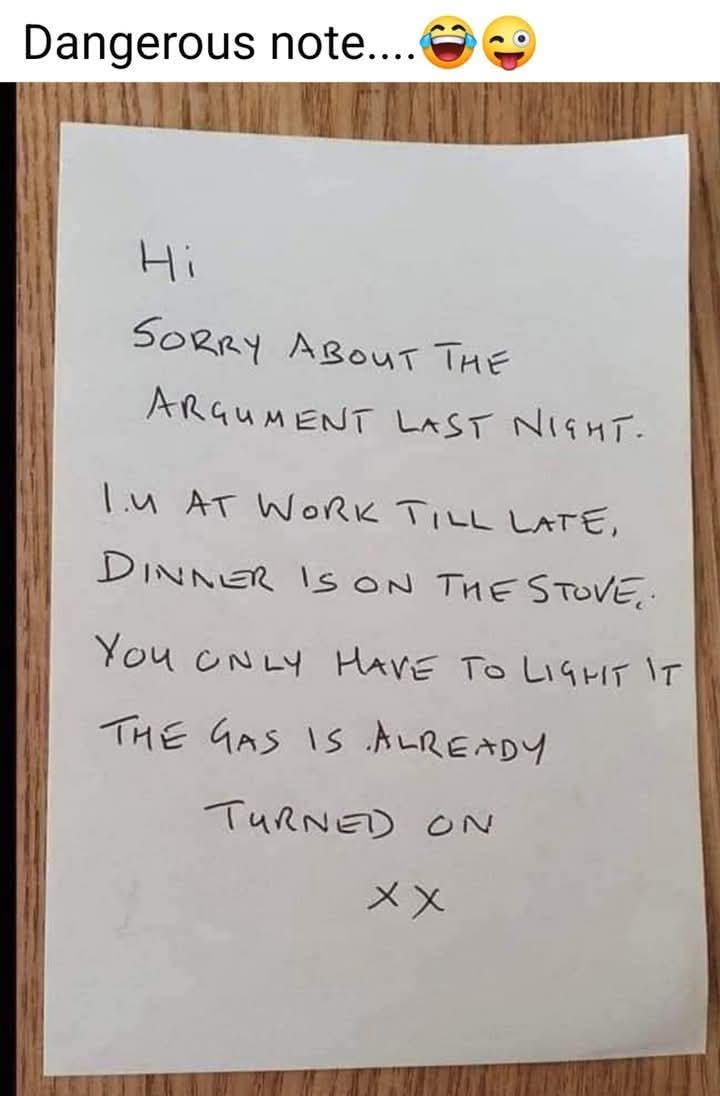 Dangerous note....😂😜
Hi
SORRY ABOUT THE
ARGUMENT LAST NIGHT.
I.M AT WORK TILL LATE,
DINNER IS ON THE STOVE,.
YOU ONLY HAVE TO LIGHT IT
THE GAS IS ALREADY
TURNED ON
XX